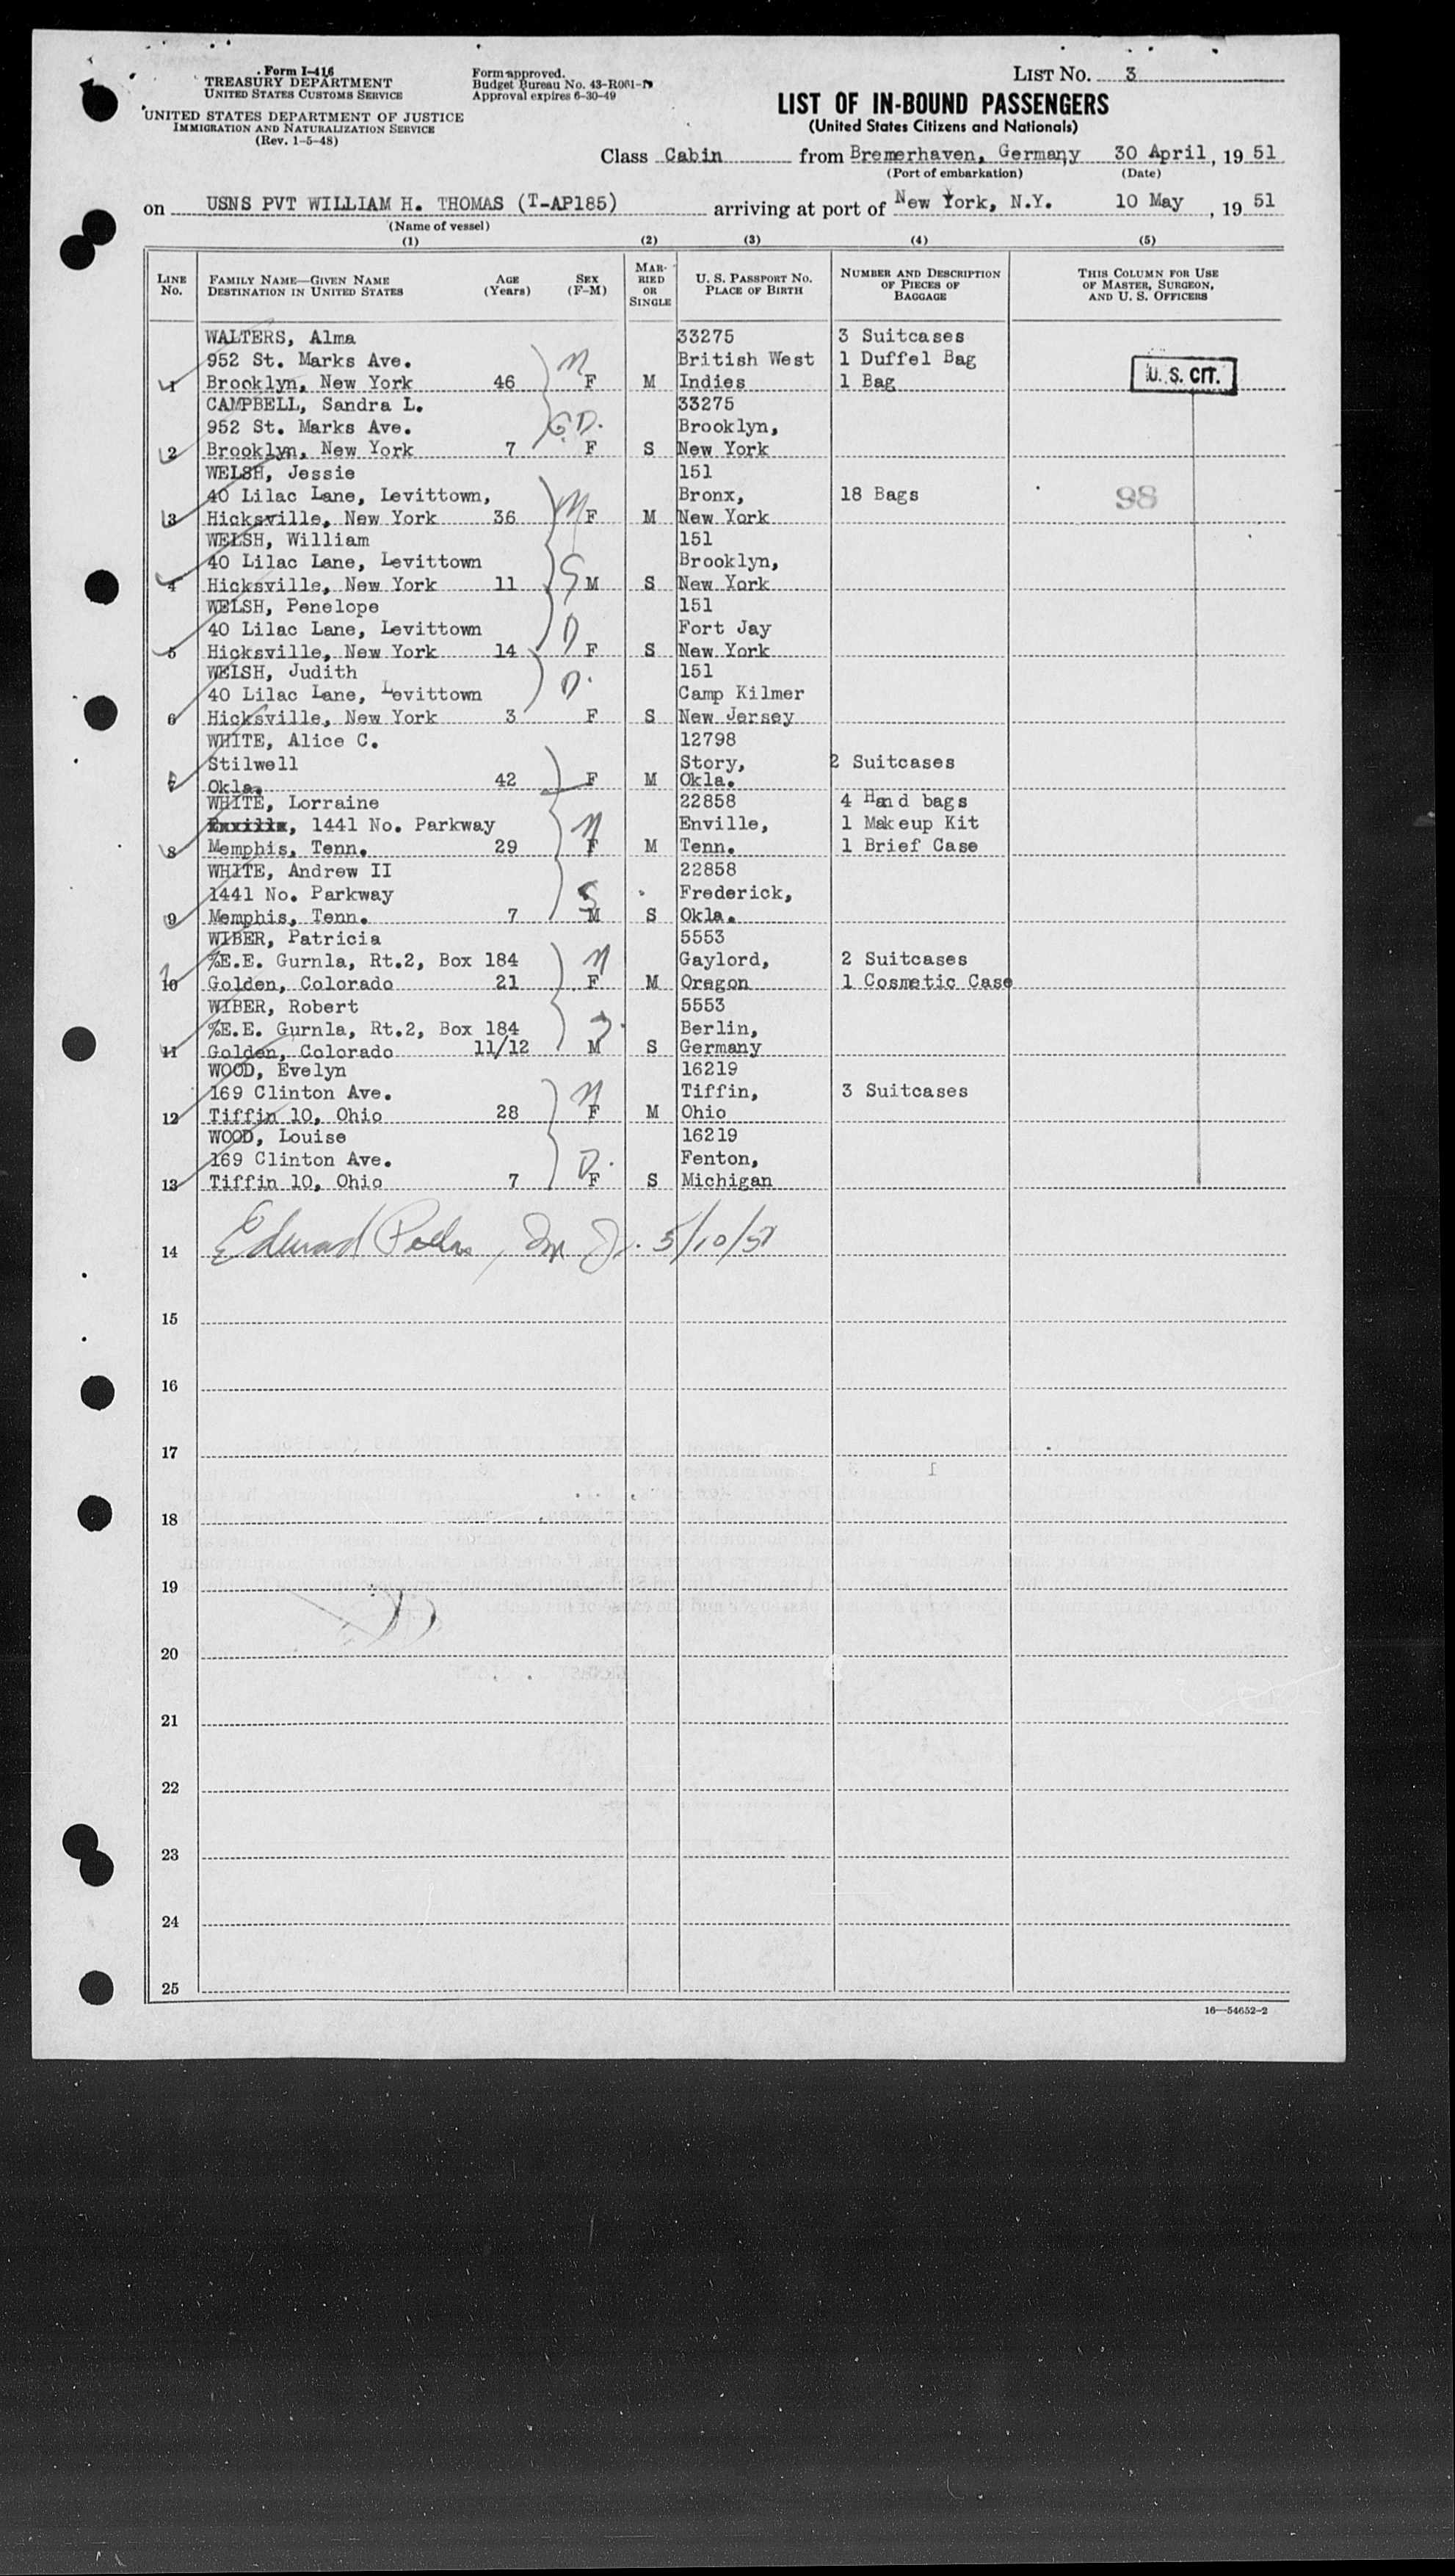 Form I-416
TREASURY DEPARTMENT
UNITED STATES CUSTOMS SERVICE
UNITED STATES DEPARTMENT OF JUSTICE
IMMIGRATION AND NATURALIZATION SERVICE
(Rev. 1-5-48)
Form approved.
Budget Bureau No. 43-R061-
Approval expires 6-30-49
LIST NO. 3
LIST OF IN-BOUND PASSENGERS
(United States Citizens and Nationals)
Class Cabin from Bremerhaven, Germany 30 April, 19 51
(Port of embarkation) (Date)
on USNS PVT WILLIAM H. THOMAS (T-AP185) arriving at port of New York, N.Y. 10 May, 19 51
(Name of vessel)
(1) (2) (3) (4) (5)
LINE No. FAMILY NAME—GIVEN NAME DESTINATION IN UNITED STATES AGE (Years) SEX (F-M) MARRIED OR SINGLE U. S. PASSPORT NO. PLACE OF BIRTH NUMBER AND DESCRIPTION OF PIECES OF BAGGAGE THIS COLUMN FOR USE OF MASTER, SURGEON, AND U. S. OFFICERS
WALTERS, Alma 33275 3 Suitcases
952 St. Marks Ave. M British West 1 Duffel Bag
1 Brooklyn, New York 46 F M Indies 1 Bag U. S. CIT.
CAMPBELL, Sandra L. 33275
952 St. Marks Ave. G.D. Brooklyn,
2 Brooklyn, New York 7 F S New York
WELSH, Jessie 151
40 Lilac Lane, Levittown, M Bronx, 18 Bags 98
3 Hicksville, New York 36 F M New York
WELSH, William 151
40 Lilac Lane, Levittown S Brooklyn,
4 Hicksville, New York 11 M S New York
WELSH, Penelope 151
40 Lilac Lane, Levittown D Fort Jay
5 Hicksville, New York 14 F S New York
WELSH, Judith 151
40 Lilac Lane, Levittown D. Camp Kilmer
6 Hicksville, New York 3 F S New Jersey
WHITE, Alice C. 12798
Stilwell Story, 2 Suitcases
7 Okla. 42 F M Okla.
WHITE, Lorraine 22858 4 Hand bags
1441 No. Parkway M Enville, 1 Makeup Kit
8 Memphis, Tenn. 29 F M Tenn. 1 Brief Case
WHITE, Andrew II 22858
1441 No. Parkway S Frederick,
9 Memphis, Tenn. 7 M S Okla.
WIBER, Patricia 5553
%E.E. Gurnla, Rt.2, Box 184 M Gaylord, 2 Suitcases
10 Golden, Colorado 21 F M Oregon 1 Cosmetic Case
WIBER, Robert 5553
%E.E. Gurnla, Rt.2, Box 184 Berlin,
11 Golden, Colorado 11/12 M S Germany
WOOD, Evelyn 16219
169 Clinton Ave. M Tiffin, 3 Suitcases
12 Tiffin 10, Ohio 28 F M Ohio
WOOD, Louise 16219
169 Clinton Ave. D. Fenton,
13 Tiffin 10, Ohio 7 F S Michigan
14 Edward 5/10/51
15
16
17
18
19
20
21
22
23
24
25
16—54652-2